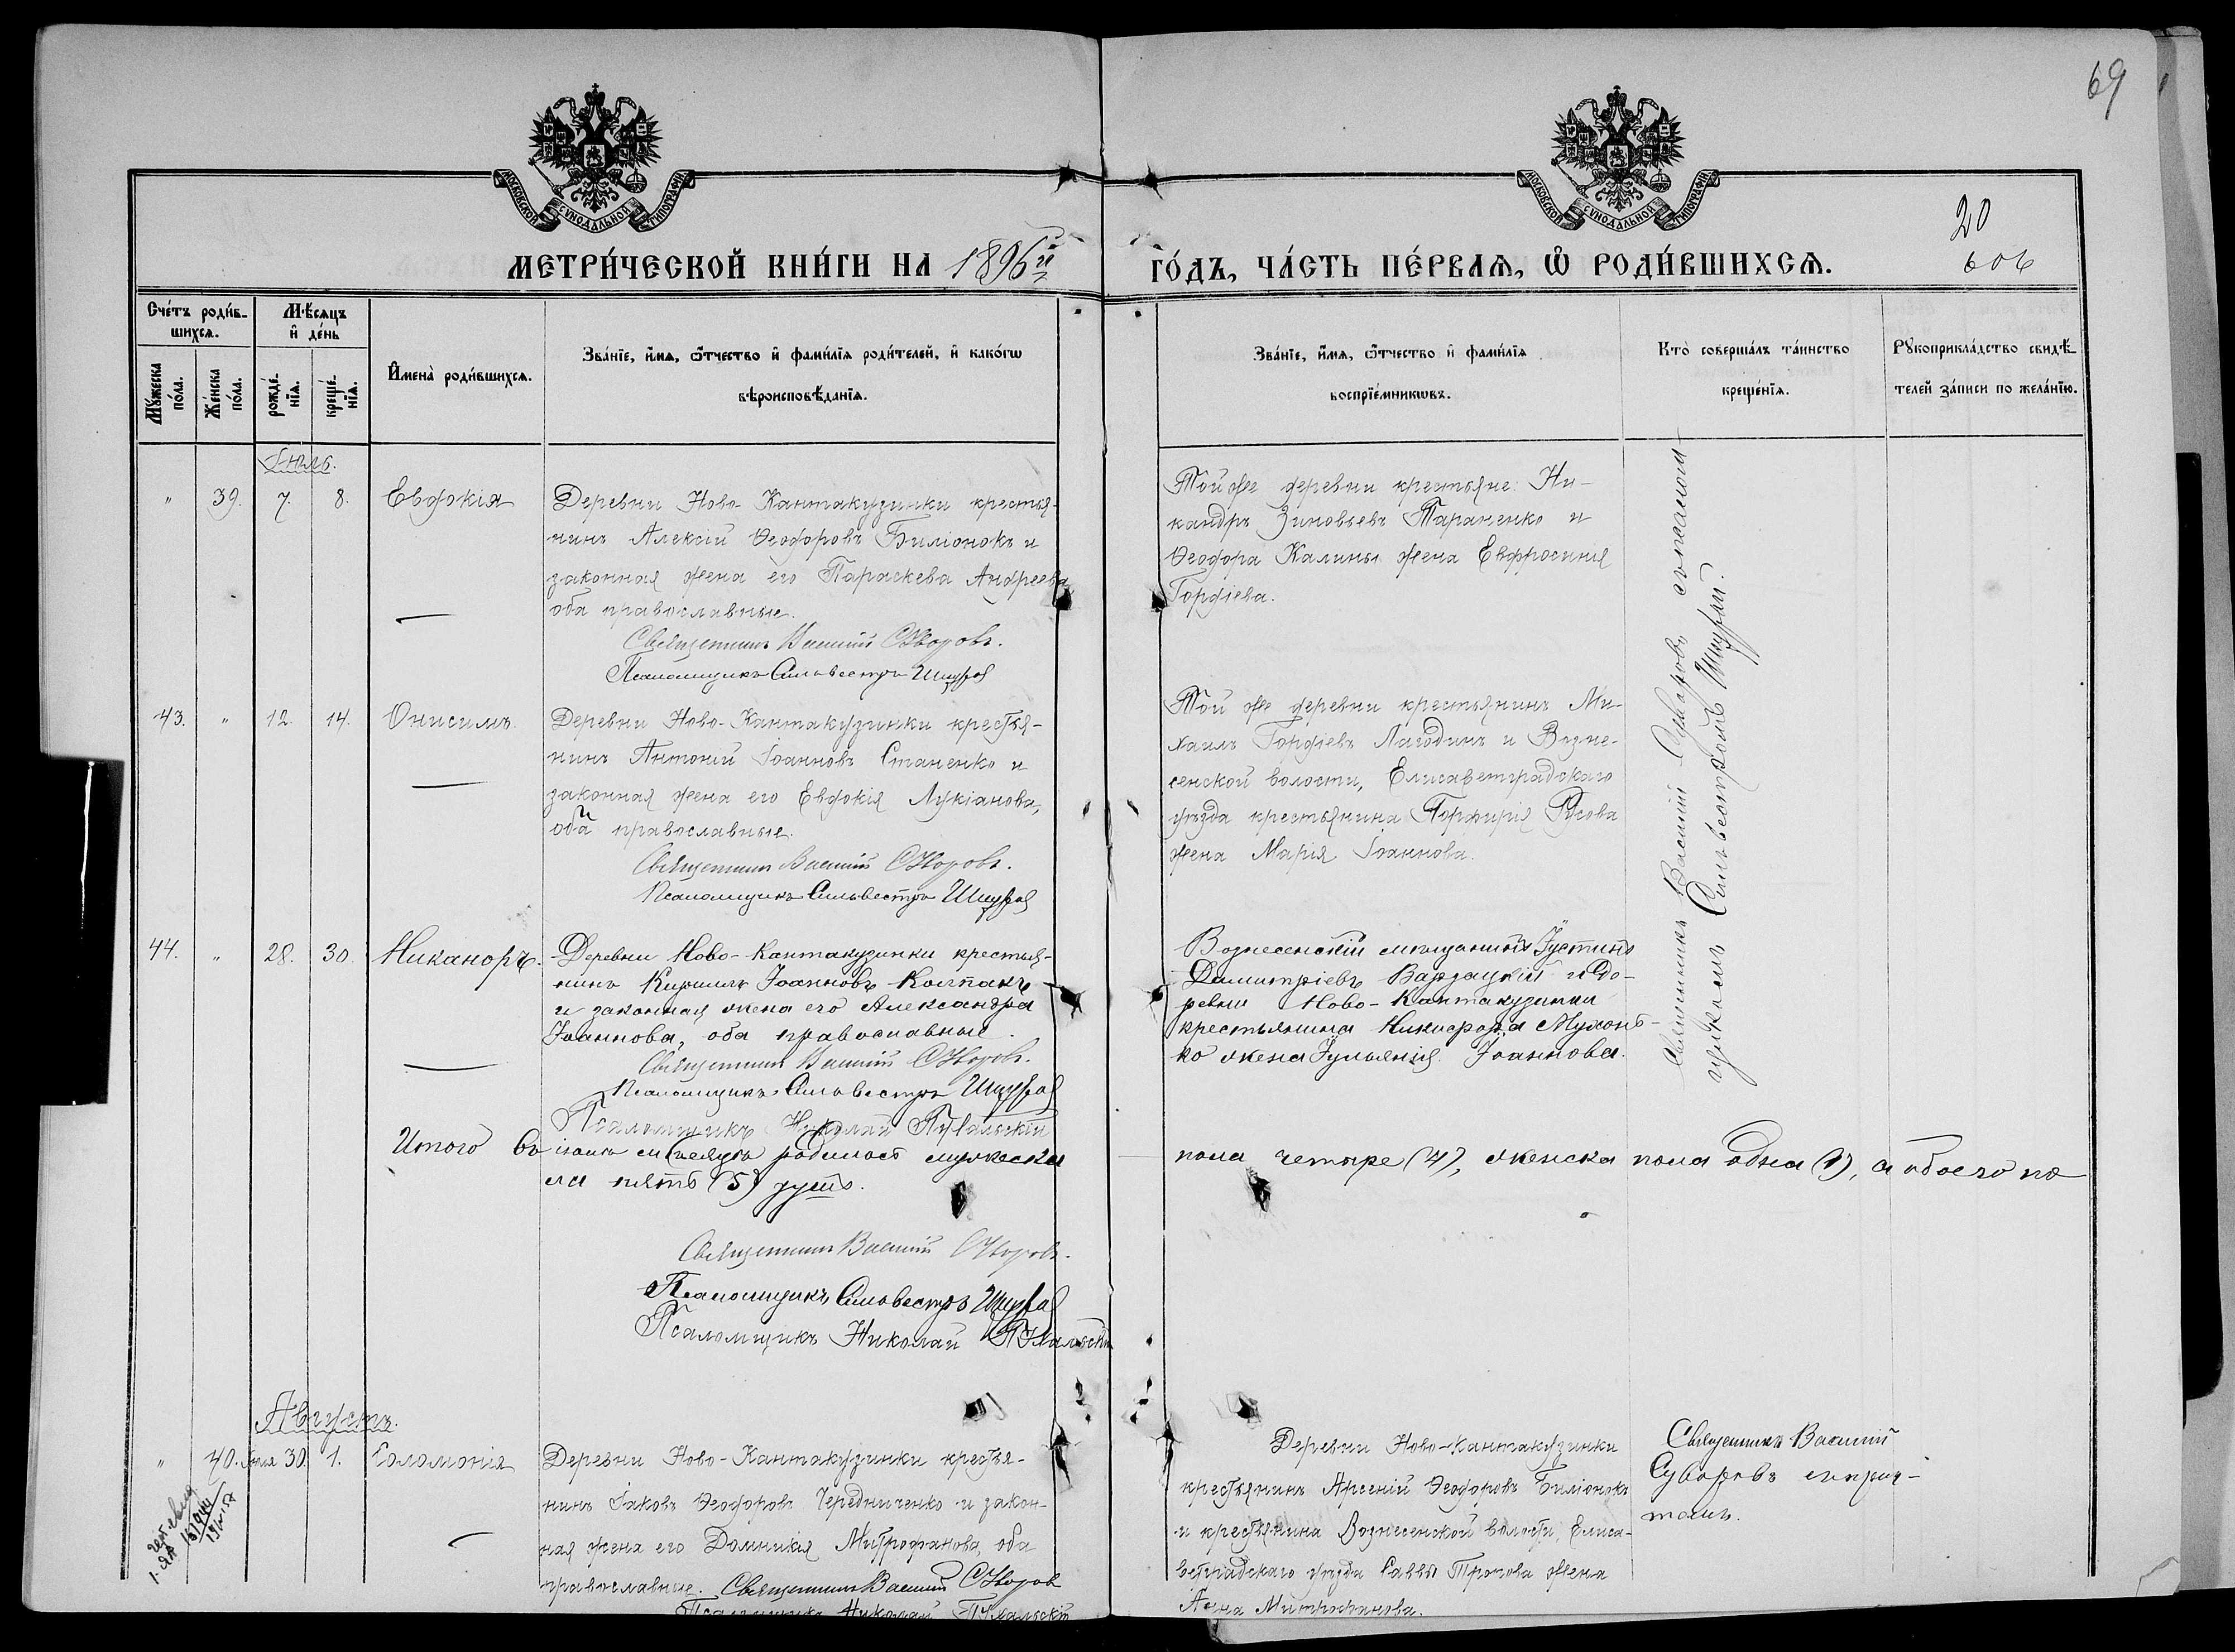 69
МОСКОВСКОЙ СѴНОДАЛЬНОЙ ТИПОГРАФІИ
МОСКОВСКОЙ СѴНОДАЛЬНОЙ ТИПОГРАФІИ
20
606
МЕТРИ́ЧЕСКОЙ КНИ́ГИ НА 1896й
ГО́ДЪ, ЧА́СТЬ ПЕ́РВАѦ, Ѡ҆ РОДИ́ВШИХСѦ.
Сче́тъ роди́в-
шихсѧ.
Мꙋ́жеска по́ла.
Же́нска по́ла.
Мѣ́сѧцъ
и҆ де́нь
рожде́-
нїѧ.
креще́-
нїѧ.
И҆мена̀ роди́вшихсѧ.
Зва́нїе, и҆́мѧ, ѻ҆́тчество и҆ фами́лїѧ роди́телей, и҆ како́гѡ
вѣроисповѣ́данїѧ.
Зва́нїе, и҆́мѧ, ѻ҆́тчество и҆ фами́лїѧ
воспрїе́мникѡвъ.
Кто̀ соверша́лъ та́инство
креще́нїѧ.
Рꙋкоприкла́дство свидѣ́-
телей за́писи по жела́нїю.
Іюль.
" 39. 7. 8. Евдокія
Деревни Ново-Кантакузинки крестья-
нинъ Алексій Ѳеодоровъ Биліонокъ и
законная жена его Параскева Андреева
оба православные.
Священникъ Василій Суворовъ.
Псаломщикъ Сильвестръ Шпурай
Той же деревни крестьяне: Ни-
кандръ Зиновьевъ Тараненко и
Ѳеодора Калины жена Евфросинія
Гордіева.
43. " 12. 14. Онисимъ
Деревни Ново-Кантакузинки крестья-
нинъ Антоній Іоанновъ Станенко и
законная жена его Евдокія Лукіанова,
оба православные.
Священникъ Василій Суворовъ.
Псаломщикъ Сильвестръ Шпурай
Той же деревни крестьянинъ Ми-
хаилъ Гордіевъ Лагодинъ и Возне-
сенской волости, Елисаветградскаго
уѣзда крестьянина Порфирія Русова
жена Марія Іоаннова.
44. " 28. 30. Никаноръ.
Деревни Ново-Кантакузинки крестья-
нинъ Кириллъ Іоанновъ Колпакъ
и законная жена его Александра
Іоаннова, оба православные.
Священникъ Василій Суворовъ.
Псаломщикъ Сильвестръ Шпурай
Псаломщикъ Николай
Вознесенскій мѣщанинъ Іустинъ
Димитріевъ Варзацкій и де-
ревни Ново-Кантакузинки
крестьянина Никифора
жена Іуліанія Іоаннова.
Священникъ Василій Суворовъ съ псаломщикомъ
Сильвестромъ Шпурай.
Итого въ іюлѣ мѣсяцѣ родилось мужеска
пола четыре (4), женска пола одна (1), а обоего по-
ла пять (5) душъ.
Священникъ Василій Суворовъ.
Псаломщикъ Сильвестръ Шпурай
Псаломщикъ Николай
Августъ.
" 40. Іюля 30. 1. Соломонія
Деревни Ново-Кантакузинки крестья-
нинъ Іаковъ Ѳеодоровъ Чередниченко и закон-
ная жена его Домникія Митрофанова, оба
православные. Священникъ Василій Суворовъ
Псаломщикъ Николай
Деревни Ново-Кантакузинки
крестьянинъ Арсеній Ѳеодоровъ Биліонокъ
и крестьянина Вознесенской волости, Елиса-
ветградскаго уѣзда Саввы жена
Анна Митрофанова.
Священникъ Василій
Суворовъ съ прич-
томъ.